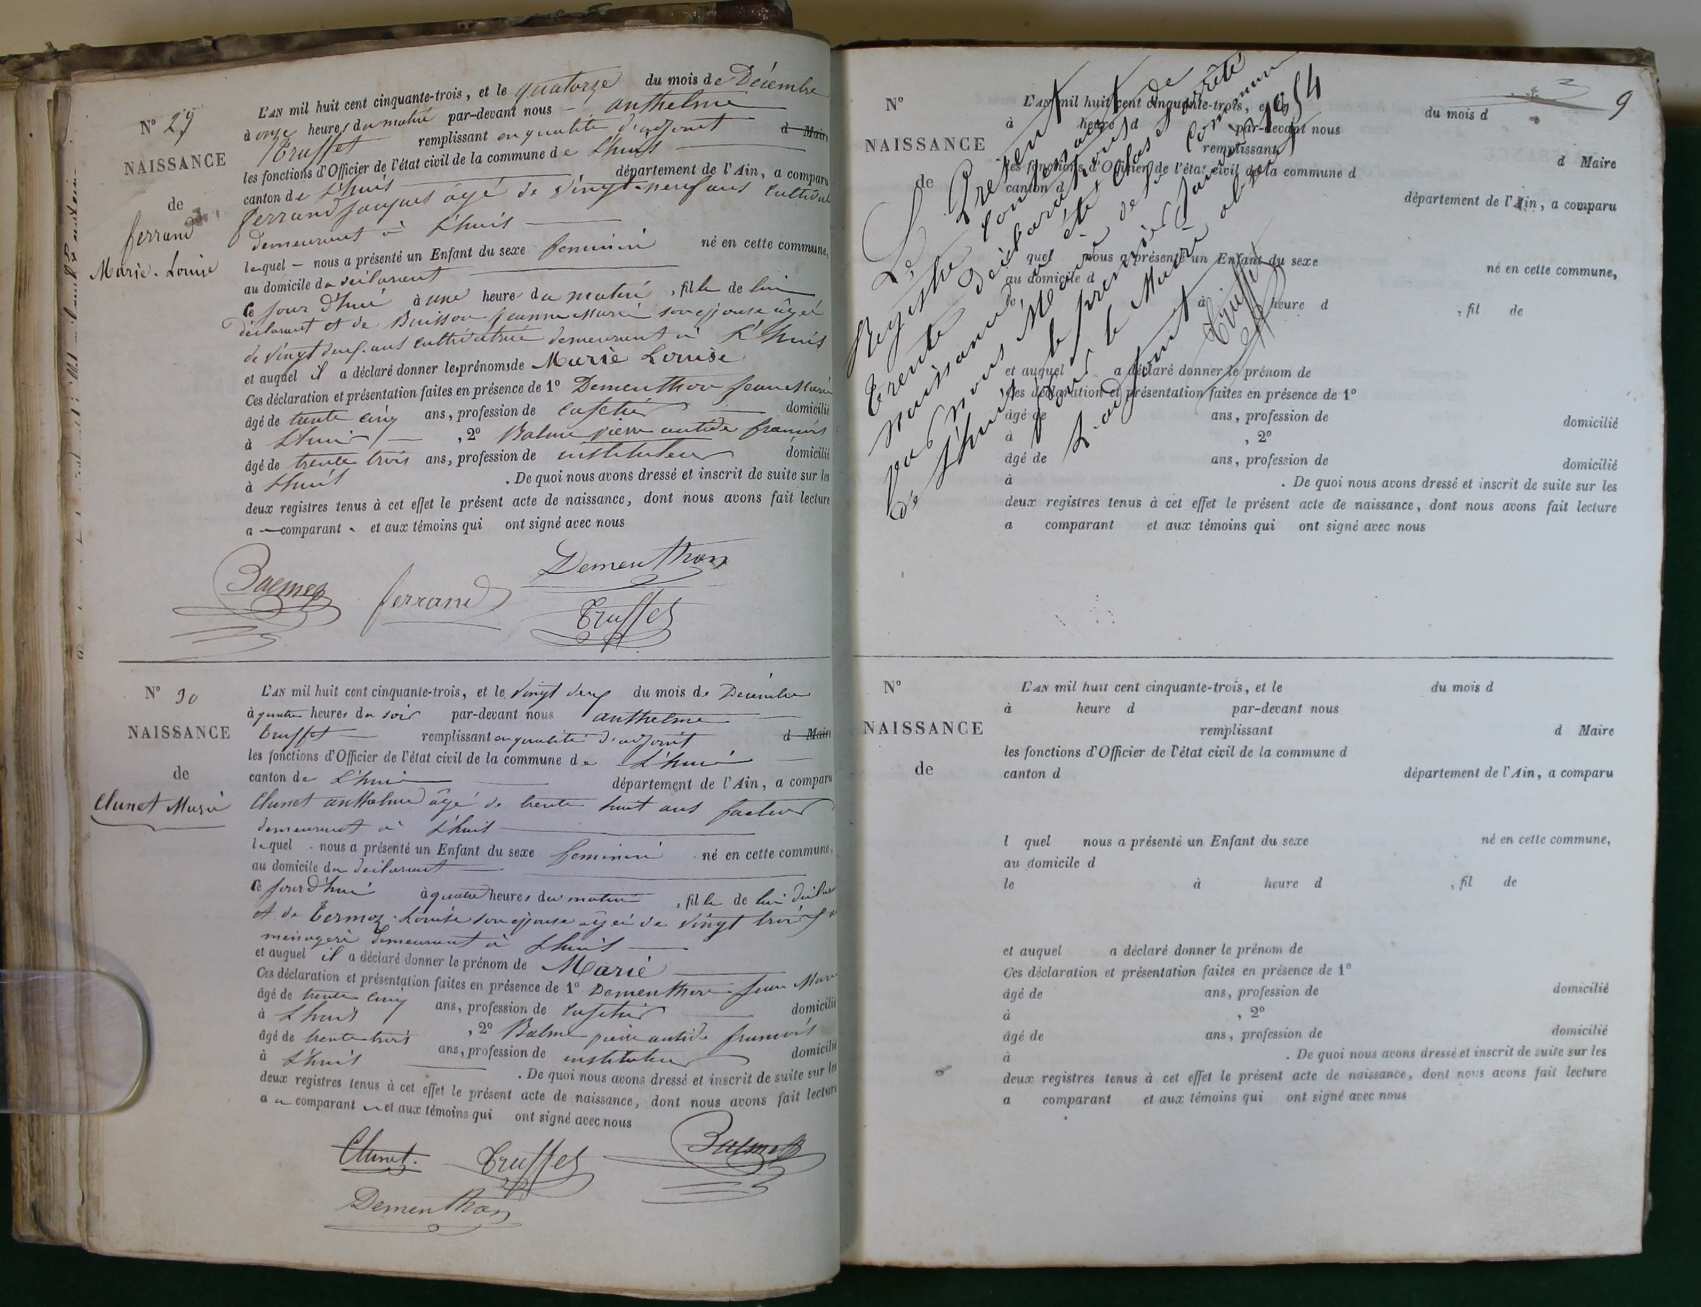 N° 29
NAISSANCE
de
ferrand
Marie-Louise
L'AN mil huit cent cinquante-trois, et le quatorze du mois de Décembre
à onze heures du matin par-devant nous anthelme
Truffet remplissant en qualité d'adjoint d Maire
les fonctions d'Officier de l'état civil de la commune de Lhuis
canton de Lhuis département de l'Ain, a comparu
ferrand jacques âgé de vingt-neuf ans cultivat
demeurant à Lhuis
lequel nous a présenté un Enfant du sexe feminin né en cette commune,
au domicile du déclarant
Ce jourd'hui à une heure du matin, fille de lui
déclarant et de Buisson jeanne Marie son épouse âgée
de vingt neuf ans cultivatrice demeurant à Lhuis
et auquel il a déclaré donner les prénoms de Marie Louise
Ces déclaration et présentation faites en présence de 1° Dementhon jean Marie
âgé de trente cinq ans, profession de cafetier domicilié
à Lhuis, 2° Balme pierre antide francois
âgé de trente trois ans, profession de instituteur domicilié
à Lhuis. De quoi nous avons dressé et inscrit de suite sur les
deux registres tenus à cet effet le présent acte de naissance, dont nous avons fait lecture
a comparant et aux témoins qui ont signé avec nous
Balme ferrand Dementhon
Truffet
N° 30
NAISSANCE
de
Clunet Marie
L'AN mil huit cent cinquante-trois, et le vingt neuf du mois de Décembre
à quatre heures du soir par-devant nous anthelme
Truffet remplissant en qualité d'adjoint d Maire
les fonctions d'Officier de l'état civil de la commune de Lhuis
canton de Lhuis département de l'Ain, a comparu
Clunet anthelme âgé de trente huit ans facteur
demeurant à Lhuis
lequel nous a présenté un Enfant du sexe feminin né en cette commune,
au domicile du déclarant
Ce jourd'hui à quatre heures du matin, fille de lui
et de Termoz Louise son épouse âgée de vingt trois
ménagère demeurant à Lhuis
et auquel il a déclaré donner le prénom de Marie
Ces déclaration et présentation faites en présence de 1° Dementhon jean Marie
âgé de trente cinq ans, profession de cafetier domicilié
à Lhuis, 2° Balme pierre antide francois
âgé de trente trois ans, profession de instituteur domicilié
à Lhuis. De quoi nous avons dressé et inscrit de suite sur les
deux registres tenus à cet effet le présent acte de naissance, dont nous avons fait lecture
a comparant et aux témoins qui ont signé avec nous
Clunet Truffet Balme
Dementhon
9
N°
NAISSANCE
de
L'AN mil huit cent cinquante-trois, et le du mois d
à heure d par-devant nous
remplissant d Maire
les fonctions d'Officier de l'état civil de la commune d
canton d département de l'Ain, a comparu
l quel nous a présenté un Enfant du sexe né en cette commune,
au domicile d
le à heure d, fil de
et auquel a déclaré donner le prénom de
Ces déclaration et présentation faites en présence de 1°
âgé de ans, profession de domicilié
à, 2°
âgé de ans, profession de domicilié
à. De quoi nous avons dressé et inscrit de suite sur les
deux registres tenus à cet effet le présent acte de naissance, dont nous avons fait lecture
a comparant et aux témoins qui ont signé avec nous
Le Present
Registre contenant
trente déclarations de
naissance a été clos et arrêté
par nous Maire de la Commune
de Lhuis le premier janvier 1854
pour le Maire
L'adjoint
Truffet
N°
NAISSANCE
de
L'AN mil huit cent cinquante-trois, et le du mois d
à heure d par-devant nous
remplissant d Maire
les fonctions d'Officier de l'état civil de la commune d
canton d département de l'Ain, a comparu
l quel nous a présenté un Enfant du sexe né en cette commune,
au domicile d
le à heure d, fil de
et auquel a déclaré donner le prénom de
Ces déclaration et présentation faites en présence de 1°
âgé de ans, profession de domicilié
à, 2°
âgé de ans, profession de domicilié
à. De quoi nous avons dressé et inscrit de suite sur les
deux registres tenus à cet effet le présent acte de naissance, dont nous avons fait lecture
a comparant et aux témoins qui ont signé avec nous